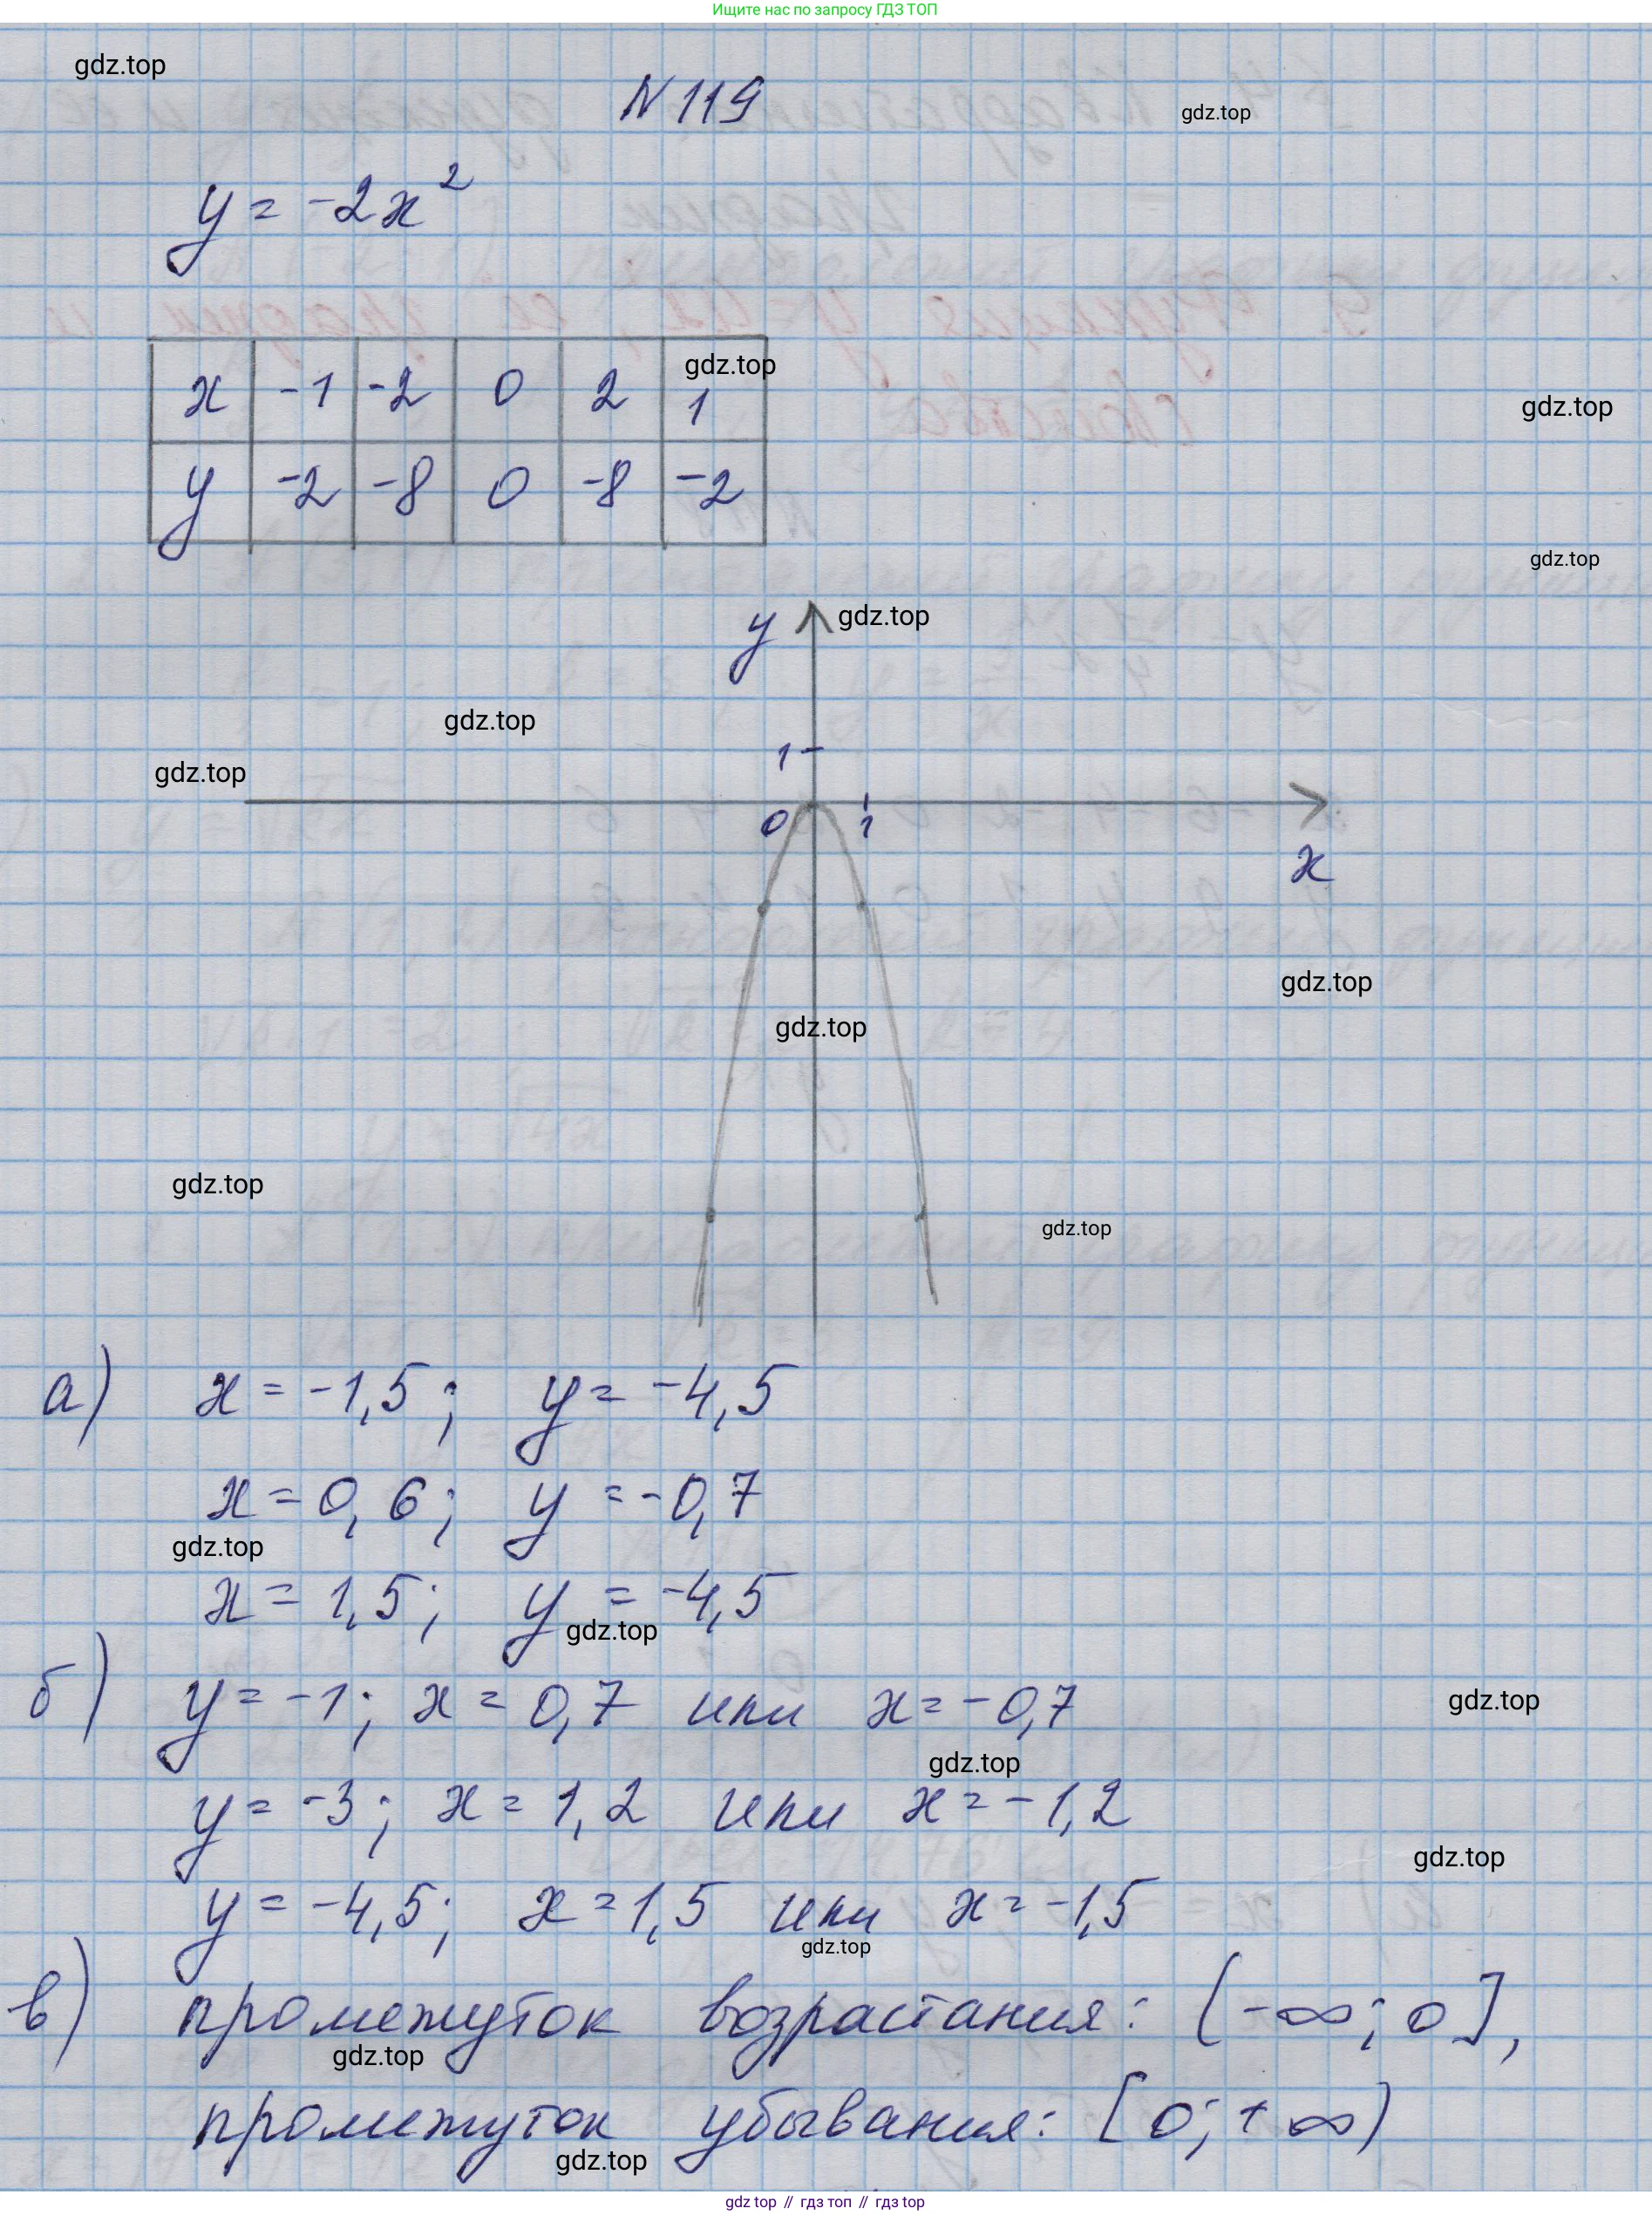 Ищите нас по запросу ГДЗ ТОП
gdz.top
N 119
gdz.top
y = -2x²
x -1 -2 0 2 1
gdz.top
y -2 -8 0 -8 -2
gdz.top
gdz.top
y
gdz.top
gdz.top
1
gdz.top
0 1
x
gdz.top
gdz.top
gdz.top
gdz.top
а) x = -1,5; y = -4,5
x = 0,6; y = -0,7
gdz.top
x = 1,5; y = -4,5
gdz.top
б) y = -1; x = 0,7 или x = -0,7
gdz.top
gdz.top
y = -3; x = 1,2 или x = -1,2
gdz.top
y = -4,5; x = 1,5 или x = -1,5
gdz.top
в) промежуток возрастания: (-∞; 0],
gdz.top
промежуток убывания: [0; +∞)
gdz.top
gdz top // гдз топ // гдз top